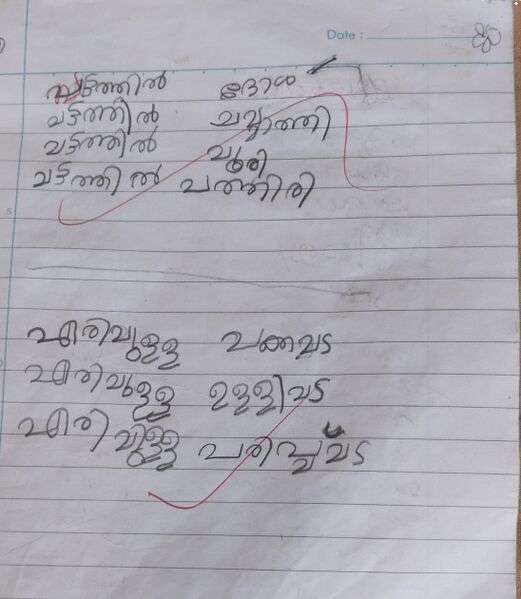 Date :
വട്ടത്തിൽ ദോശ
വട്ടത്തിൽ ചപ്പാത്തി
വട്ടത്തിൽ പൂരി
വട്ടത്തിൽ പത്തിരി
എരിവുള്ള പക്കവട
എരിവുള്ള ഉള്ളിവട
എരിവുള്ള പരിപ്പുവട